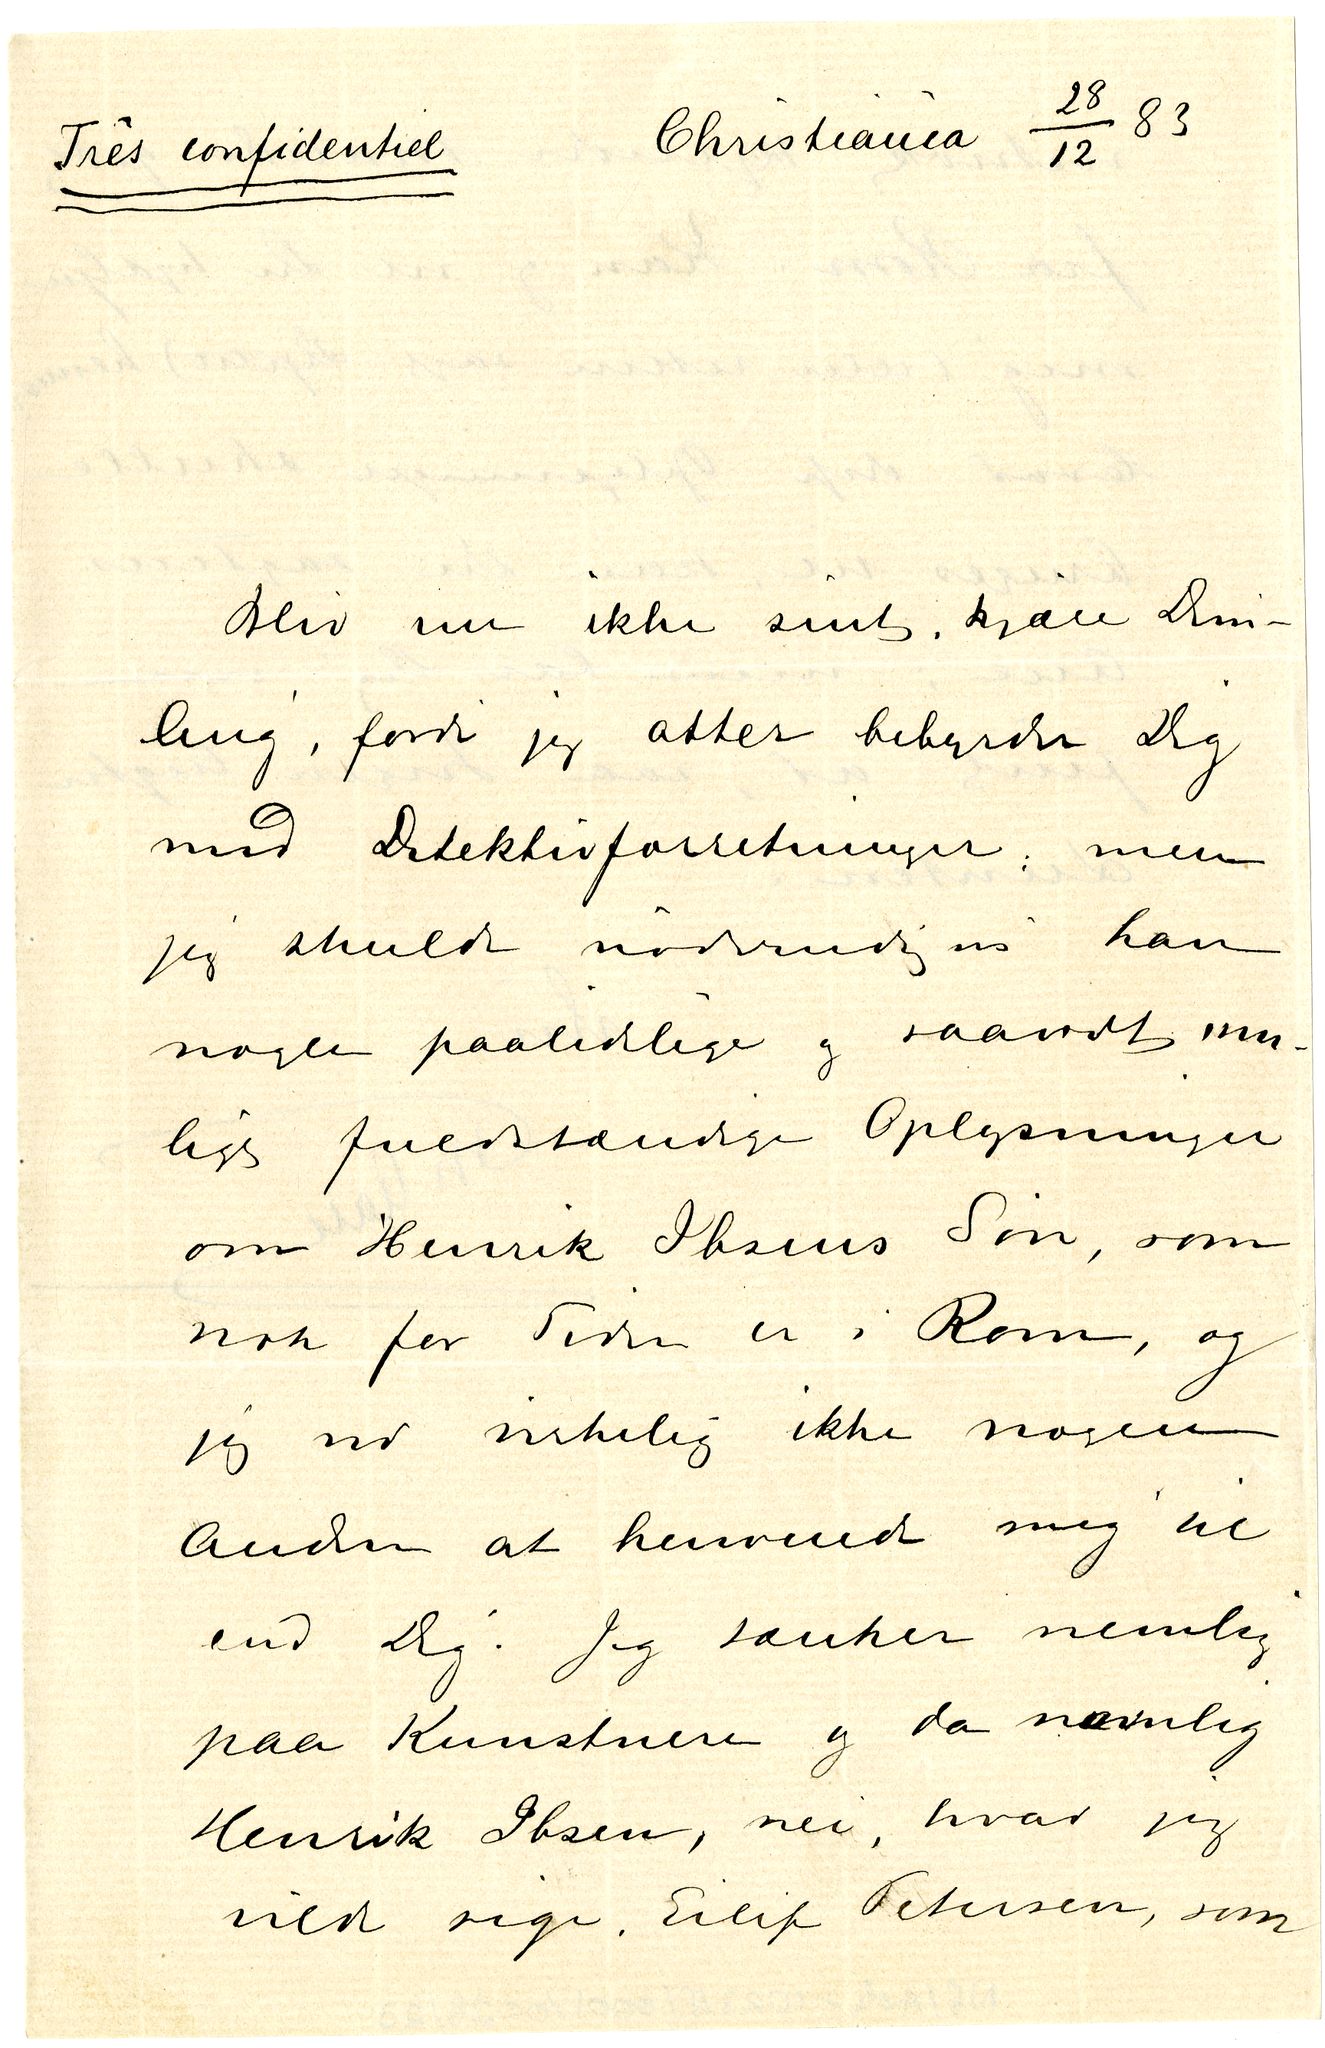 Três confidentiel
Christiania 28/12 83
Bliv nu ikke sint, kjære Dem-
ling, fordi jeg atter bebyrder Dig
med Detektivforretninger, men
jeg skulde nödvendigvis have
nogle paalidelige og saavidt mu-
ligt fuldstændige Oplysninger
om Henrik Ibsens Sön, som
nok for Tiden er i Rom, og
jeg ved virkelig ikke nogen
Anden at henvende mig til
end Dig. Jeg tænker nemlig
paa Kunstnere og da navnlig
Henrik Ibsen, nei, hvad jeg
vilde sige, Eilif Petersen, som